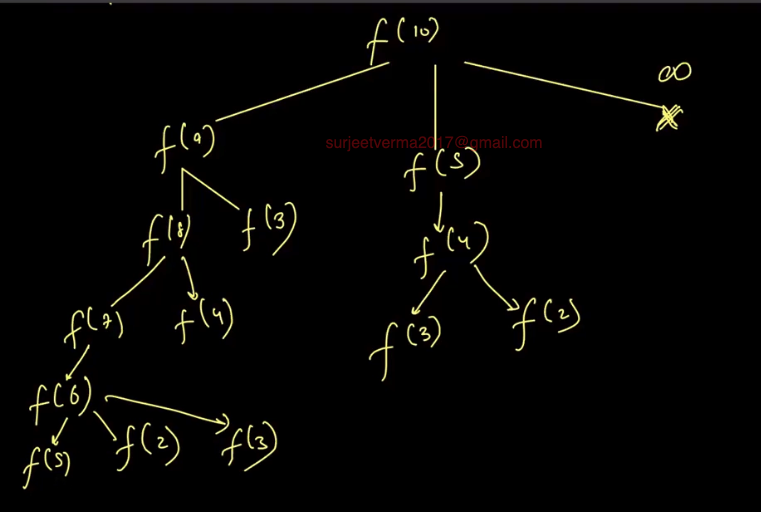 f(10)
∞
f(9)
surjeetverma2017@gmail.com
f(5)
f(8)
f(3)
f(4)
f(7)
f(4)
f(3)
f(2)
f(6)
f(5)
f(2)
f(3)